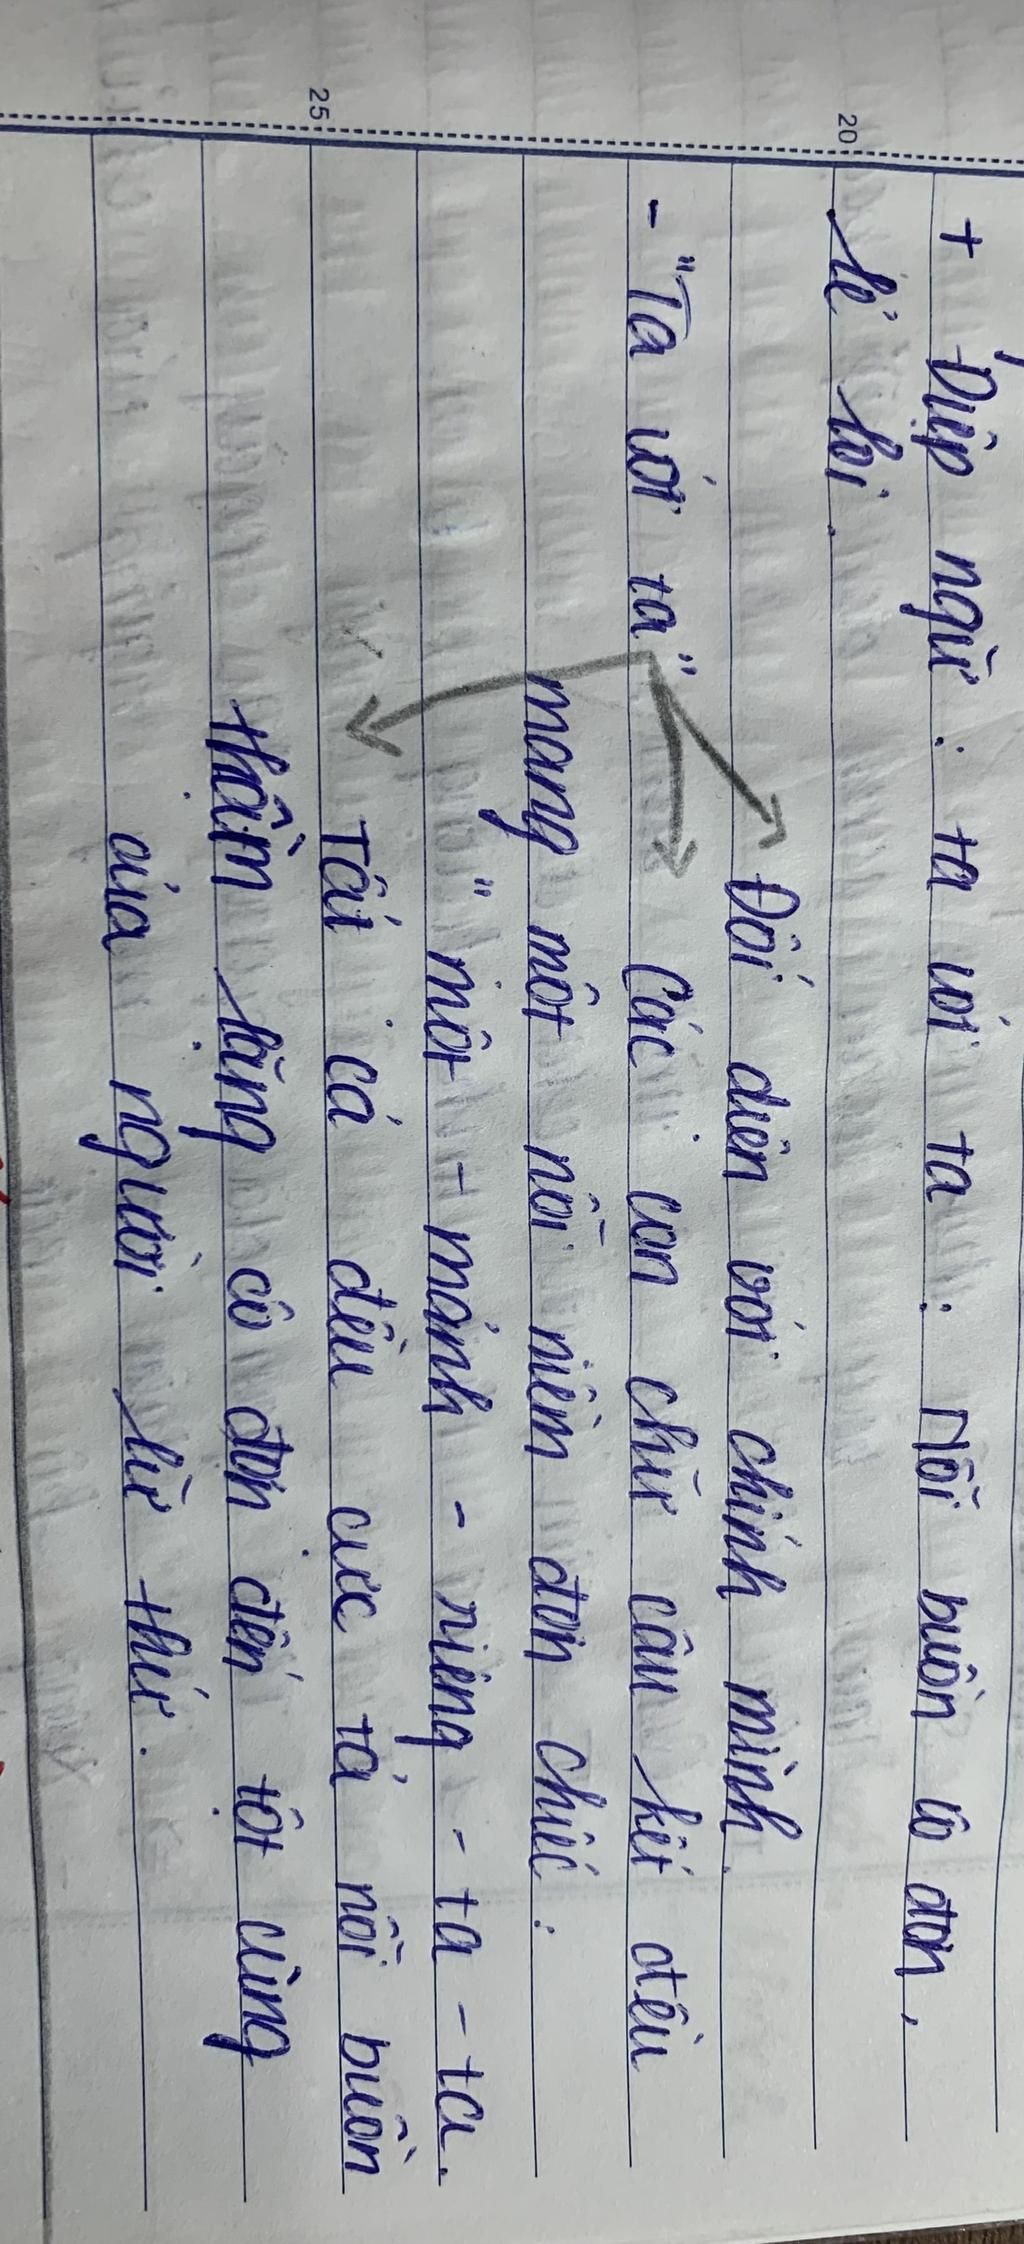 + Điệp ngữ: ta với ta: Nỗi buồn cô đơn,
lẻ loi.
Đối diện với chính mình.
- "Ta với ta" Các con chữ câu kết đều
mang một nỗi niềm đơn chiếc:
" một - mảnh - riêng - ta - ta.
Tất cả đều cực tả nỗi buồn
thầm lặng cô đơn đến tột cùng
của người lữ thứ.
20
25